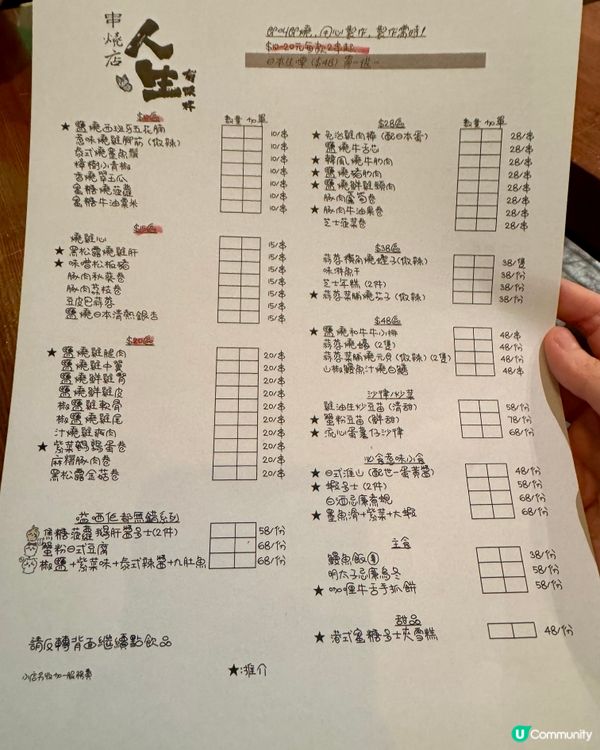 串燒店
人生
有限杯
即叫即燒，用心製作，製作需時！
$10-20元每款2串起
日本生啤 ($48) 第一杯
$10區 數量 加單
★ 鹽燒西班牙五花腩 10/串
惹味燒雞腳筋 (微辣) 10/串
泰式燒墨魚鬚 10/串
樟樹小青椒 10/串
吉燒翠玉瓜 10/串
蜜糖燒菠蘿 10/串
蜜糖牛油粟米 10/串
$15區
燒雞心 15/串
★ 黑松露燒雞肝 15/串
★ 味噌松板豬 15/串
豚肉秋葵卷 15/串
豚肉荔枝卷 15/串
豆皮巴蒜蓉 15/串
鹽燒日本清熱銀杏 15/串
$20區
★ 鹽燒雞腿肉 20/串
鹽燒雞中翼 20/串
鹽燒鮮雞腎 20/串
鹽燒鮮雞皮 20/串
椒鹽雞軟骨 20/串
椒鹽燒雞尾 20/串
汁燒雞胸肉 20/串
★ 紫菜鵪鶉蛋卷 20/串
麻糬豚肉卷 20/串
黑松露金菇卷 20/串
嗌晒佢都無錯系列
焦糖菠蘿鵝肝醬多士(2件) 58/份
蟹粉日式豆腐 68/份
椒鹽+紫菜味+泰式辣醬+九肚魚 68/份
請反轉背面繼續點飲品
小店另收加一服務費
★:推介
$28區 數量 加單
★ 免治雞肉棒 (配日本蛋) 28/串
鹽燒牛舌芯 28/串
★ 韓風燒牛肋肉 28/串
★ 鹽燒豬肋肉 28/串
★ 鹽燒鮮雞頸肉 28/串
豚肉蘆筍卷 28/串
★ 豚肉牛油果卷 28/串
芝士菠菜卷 28/串
$38區
蒜蓉橫角燒蟶子(微辣) 38/隻
味淋魚干 38/份
芝士年糕 (2件) 38/份
★ 蒜蓉菜脯燒茄子(微辣) 38/份
$48區
★ 鹽燒和牛牛小排 48/串
蒜蓉燒蠔 (2隻) 48/份
蒜蓉菜脯燒元貝(微辣)(2隻) 48/份
山椒鰻魚汁燒白鱔 48/串
沙律/炒菜
雞油生炒豆苗 (清甜) 58/份
★ 蟹粉豆苗 (鮮甜) 78/份
★ 流心蛋薯仔沙律 68/份
必食惹味小食
★ 日式淮山 (配世一蛋黃醬) 48/份
★ 蝦多士 (2件) 58/份
白酒忌廉煮蜆 68/份
★ 墨魚滑+紫菜+大蝦 68/份
主食
鰻魚飯 38/份
明太子忌廉烏冬 58/份
★ 咖喱牛舌手抓餅 58/份
甜品
★ 港式蜜糖多士夾雪糕 48/份
U Community